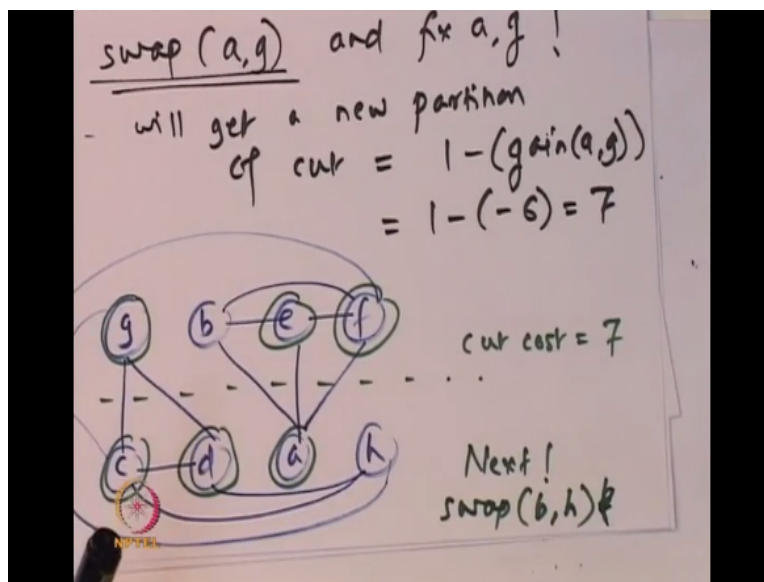 swap (a,g) and fix a,g !
- will get a new partition
of cut = 1 - (gain(a,g))
= 1 - (-6) = 7
g b e f
cut cost = 7
c d a h
Next !
swap(b,h)
NPTEL